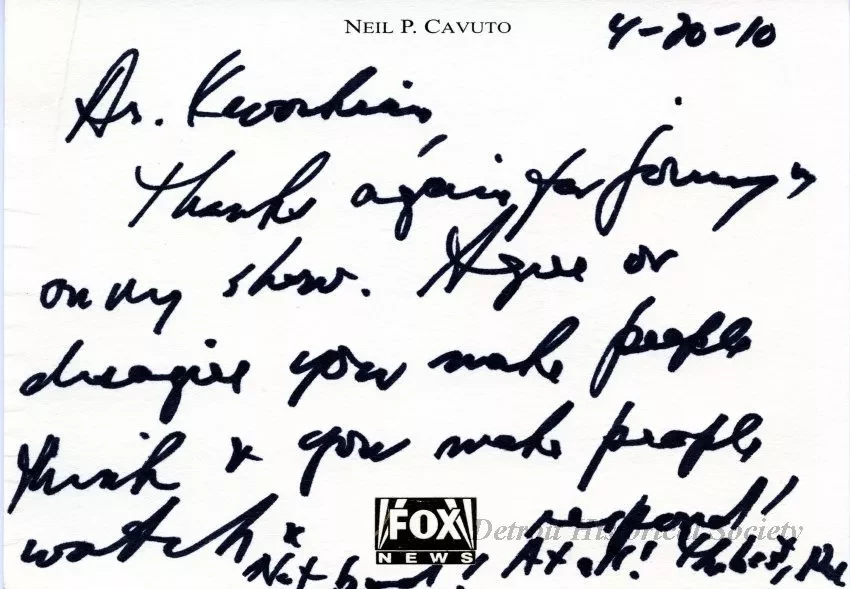 NEIL P. CAVUTO
4-20-10
Dr. Kevorkian,
Thanks again for joining us
on my show. Agree or
disagree you make people
think & you make people
watch & respond!
FOX
NEWS
Detroit Historical Society
Not bad! At all! The best, Neil